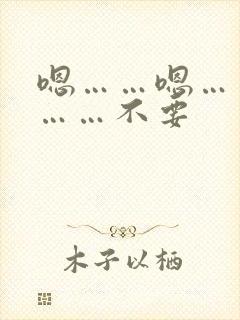 嗯……嗯…
……不要
木子以栖